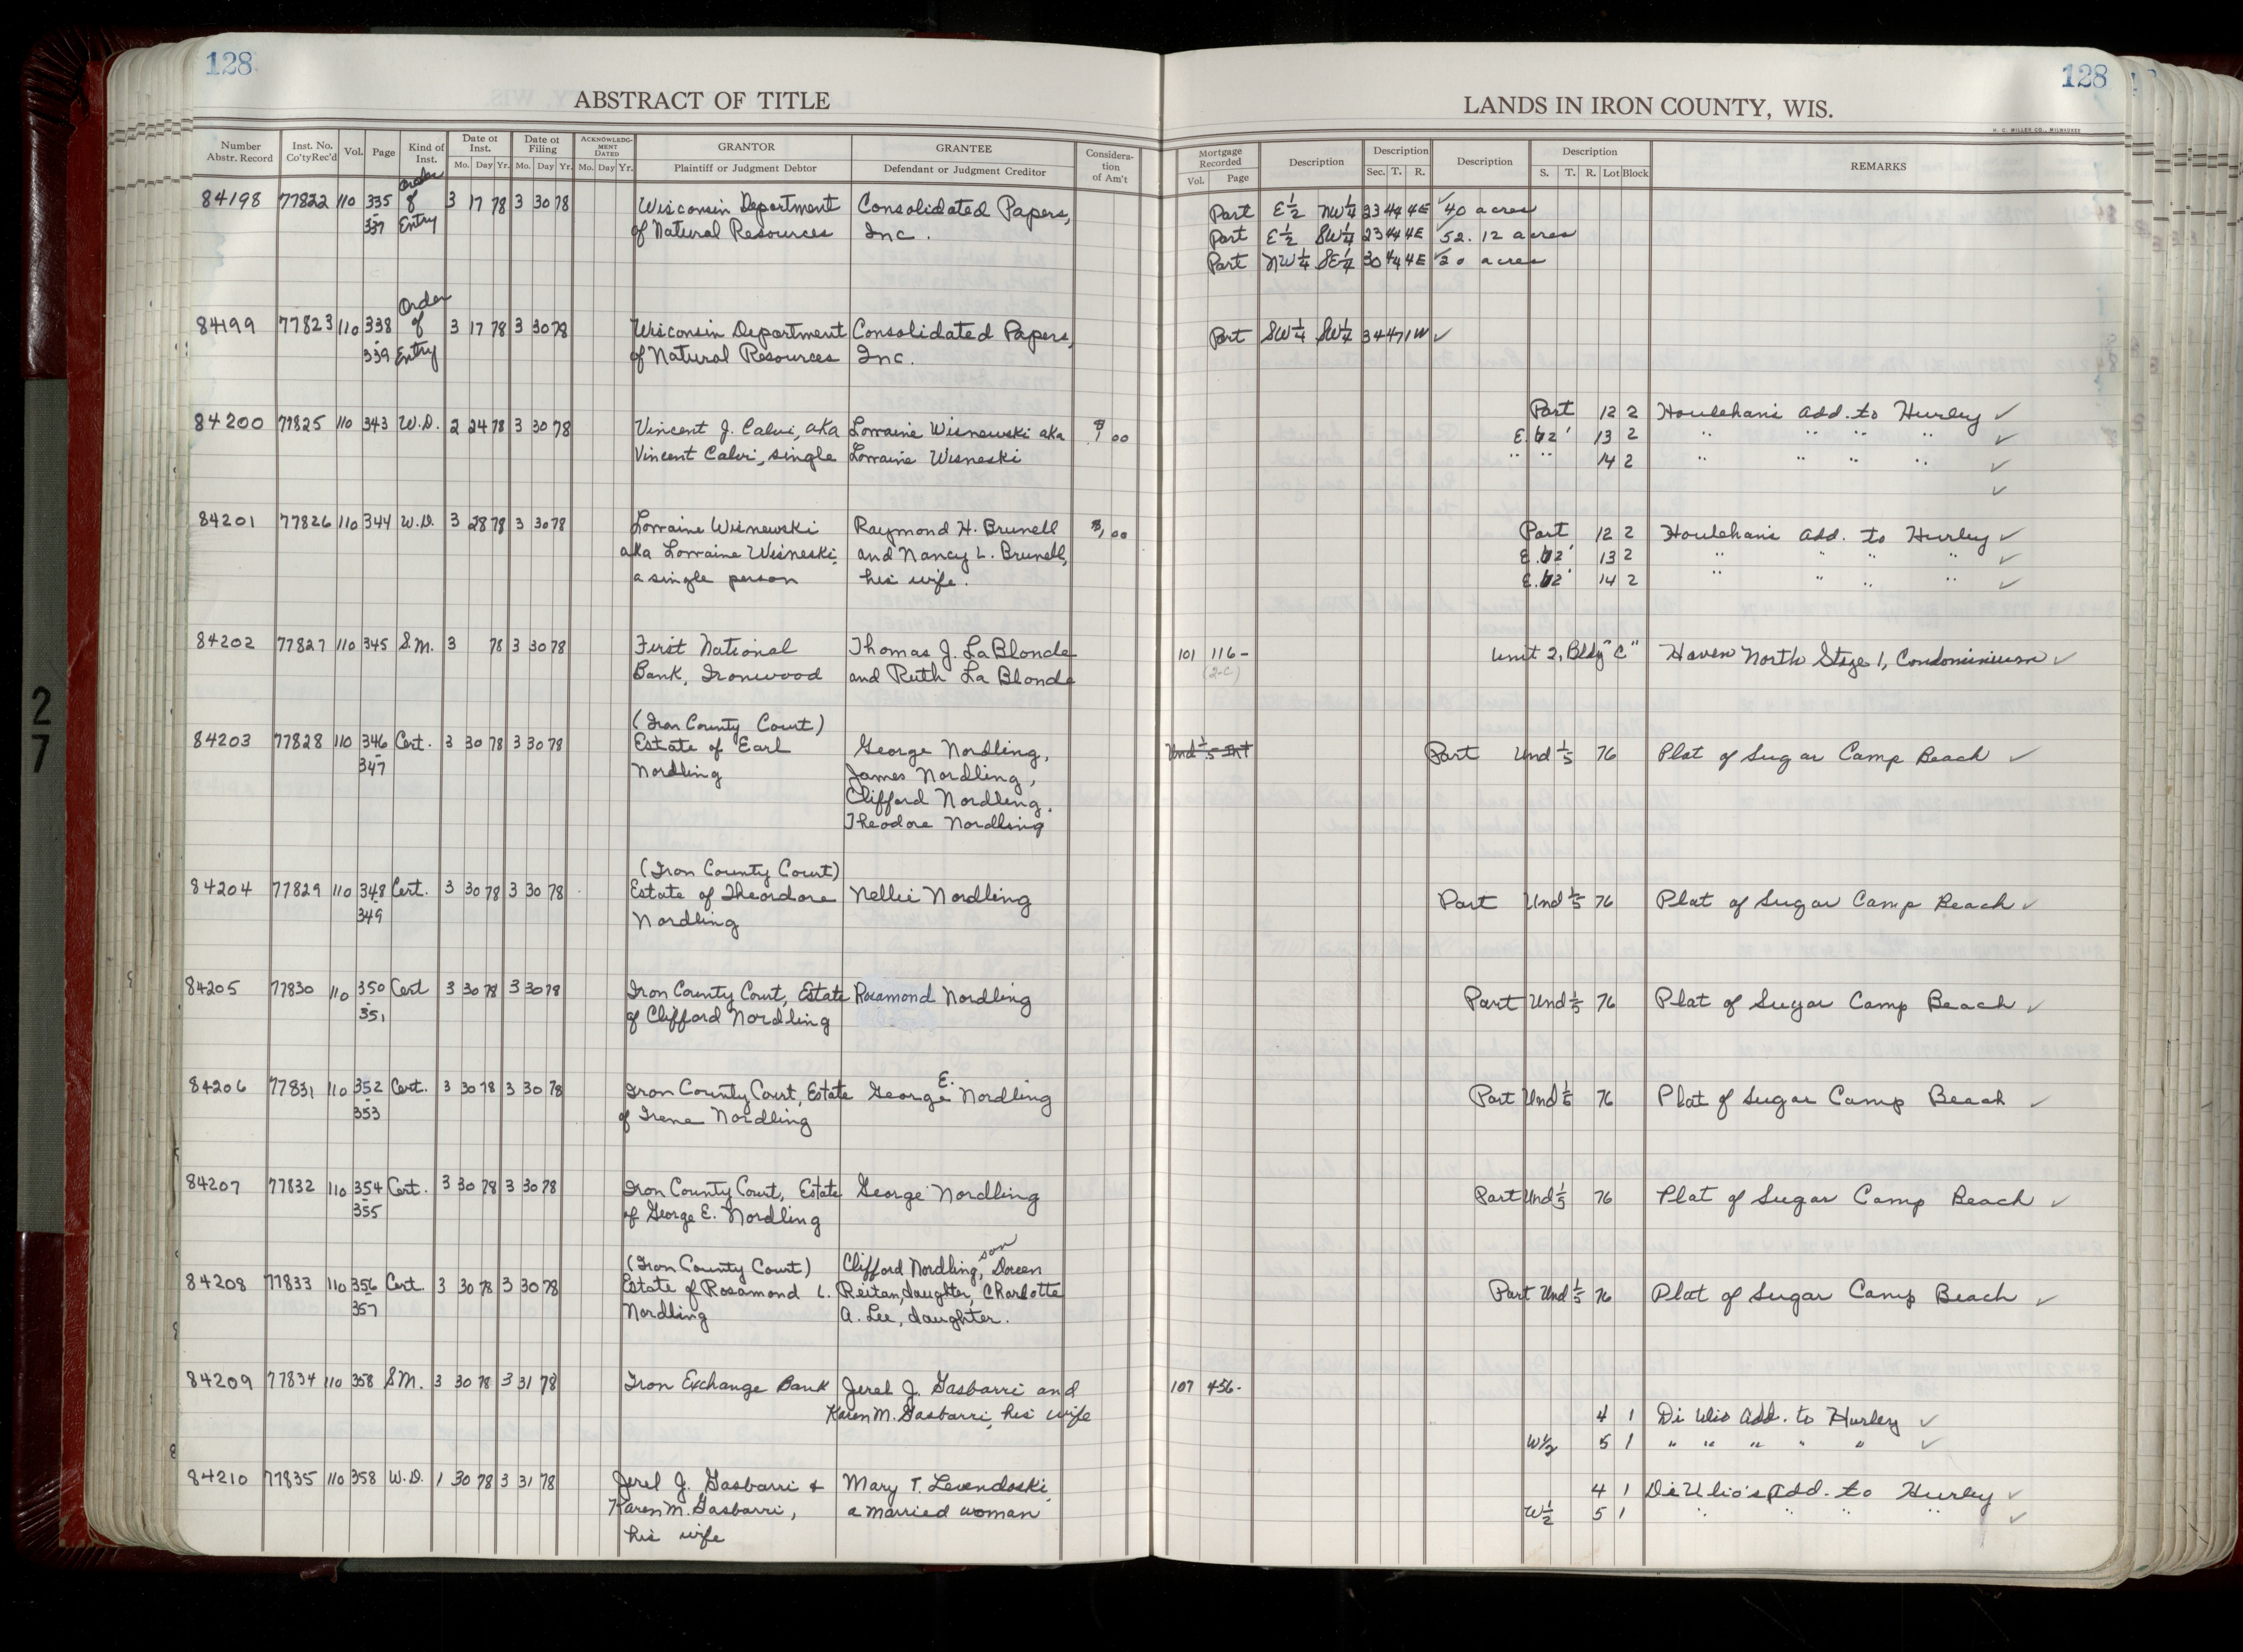 128
128
ABSTRACT OF TITLE
LANDS IN IRON COUNTY, WIS.
H. C. MILLER CO., MILWAUKEE
Number Abstr. Record Inst. No. Co'ty Rec'd Vol. Page Kind of Inst. Date of Inst. Mo. Day Yr. Date of Filing Mo. Day Yr. ACKNOWLEDGMENT DATED Mo. Day Yr. GRANTOR Plaintiff or Judgment Debtor GRANTEE Defendant or Judgment Creditor Consideration of Am't Mortgage Recorded Vol. Page Description Description Sec. T. R. Description Description S. T. R. Lot Block REMARKS
84198 77822 110 335 Order of 3 17 78 3 30 78 Wisconsin Department Consolidated Papers, Part E½ NW¼ 23 44 4E ✓ 40 acres
- 337 Entry of Natural Resources Inc. Part E½ SW¼ 23 44 4E ✓ 52.12 acres
Part NW¼ SE¼ 30 44 4E ✓ 20 acres
84199 77823 110 338 Order of 3 17 78 3 30 78 Wisconsin Department Consolidated Papers, Part SW¼ SW¼ 34 47 1W ✓
- 339 Entry of Natural Resources Inc.
84200 77825 110 343 W.D. 2 24 78 3 30 78 Vincent J. Calvi, aka Lorraine Wisnewski aka $1 00 Part 12 2 Houlehan's Add. to Hurley ✓
Vincent Calvi, single Lorraine Wisneski E. 13 2 " " " " ✓
" " 14 2 " " " " ✓
✓
84201 77826 110 344 W.D. 3 28 78 3 30 78 Lorraine Wisnewski Raymond H. Brunell $1,00 Part 12 2 Houlehan's Add. to Hurley ✓
aka Lorraine Wisneski, and Nancy L. Brunell, E. 13 2 " " " " ✓
a single person his wife. E. 14 2 " " " " ✓
84202 77827 110 345 S.M. 3 78 3 30 78 First National Thomas J. LaBlonde 101 116- Unit 2, Bldg "C" Haven North Stage 1, Condominium ✓
Bank, Ironwood and Ruth La Blonde (2-C)
(Iron County Court)
84203 77828 110 346 Cert. 3 30 78 3 30 78 Estate of Earl George Nordling, Und 1/5 Int Part Und 1/5 76 Plat of Sugar Camp Beach ✓
- 347 Nordling James Nordling,
Clifford Nordling.
Theodore Nordling
(Iron County Court)
84204 77829 110 348 Cert. 3 30 78 3 30 78 Estate of Theordore Nellie Nordling Part Und 1/5 76 Plat of Sugar Camp Beach ✓
- 349 Nordling
84205 77830 110 350 Cert 3 30 78 3 30 78 Iron County Court, Estate Rosamond Nordling Part Und 1/5 76 Plat of Sugar Camp Beach ✓
- 351 of Clifford Nordling
84206 77831 110 352 Cert. 3 30 78 3 30 78 Iron County Court, Estate George E. Nordling Part Und 76 Plat of Sugar Camp Beach ✓
- 353 of Irene Nordling
84207 77832 110 354 Cert. 3 30 78 3 30 78 Iron County Court, Estate George Nordling Part Und 1/5 76 Plat of Sugar Camp Beach ✓
- 355 of George E. Nordling
(Iron County Court) Clifford Nordling, son Doreen
84208 77833 110 356 Cert. 3 30 78 3 30 78 Estate of Rosamond L. Reitan, daughter, Charlotte Part Und 1/5 76 Plat of Sugar Camp Beach ✓
- 357 Nordling A. Lee, daughter.
84209 77834 110 358 S.M. 3 30 78 3 31 78 Iron Exchange Bank Jerel J. Gasbarri and 107 456-
Karen M. Gasbarri, his wife 4 1 Di Ulio Add. to Hurley ✓
W½ 5 1 " " " " " ✓
84210 77835 110 358 W.D. 1 30 78 3 31 78 Jerel J. Gasbarri & Mary T. Levendoski, 4 1 DiUlio's Add. to Hurley ✓
Karen M. Gasbarri, a married woman W½ 5 1 " " " " ✓
his wife
27